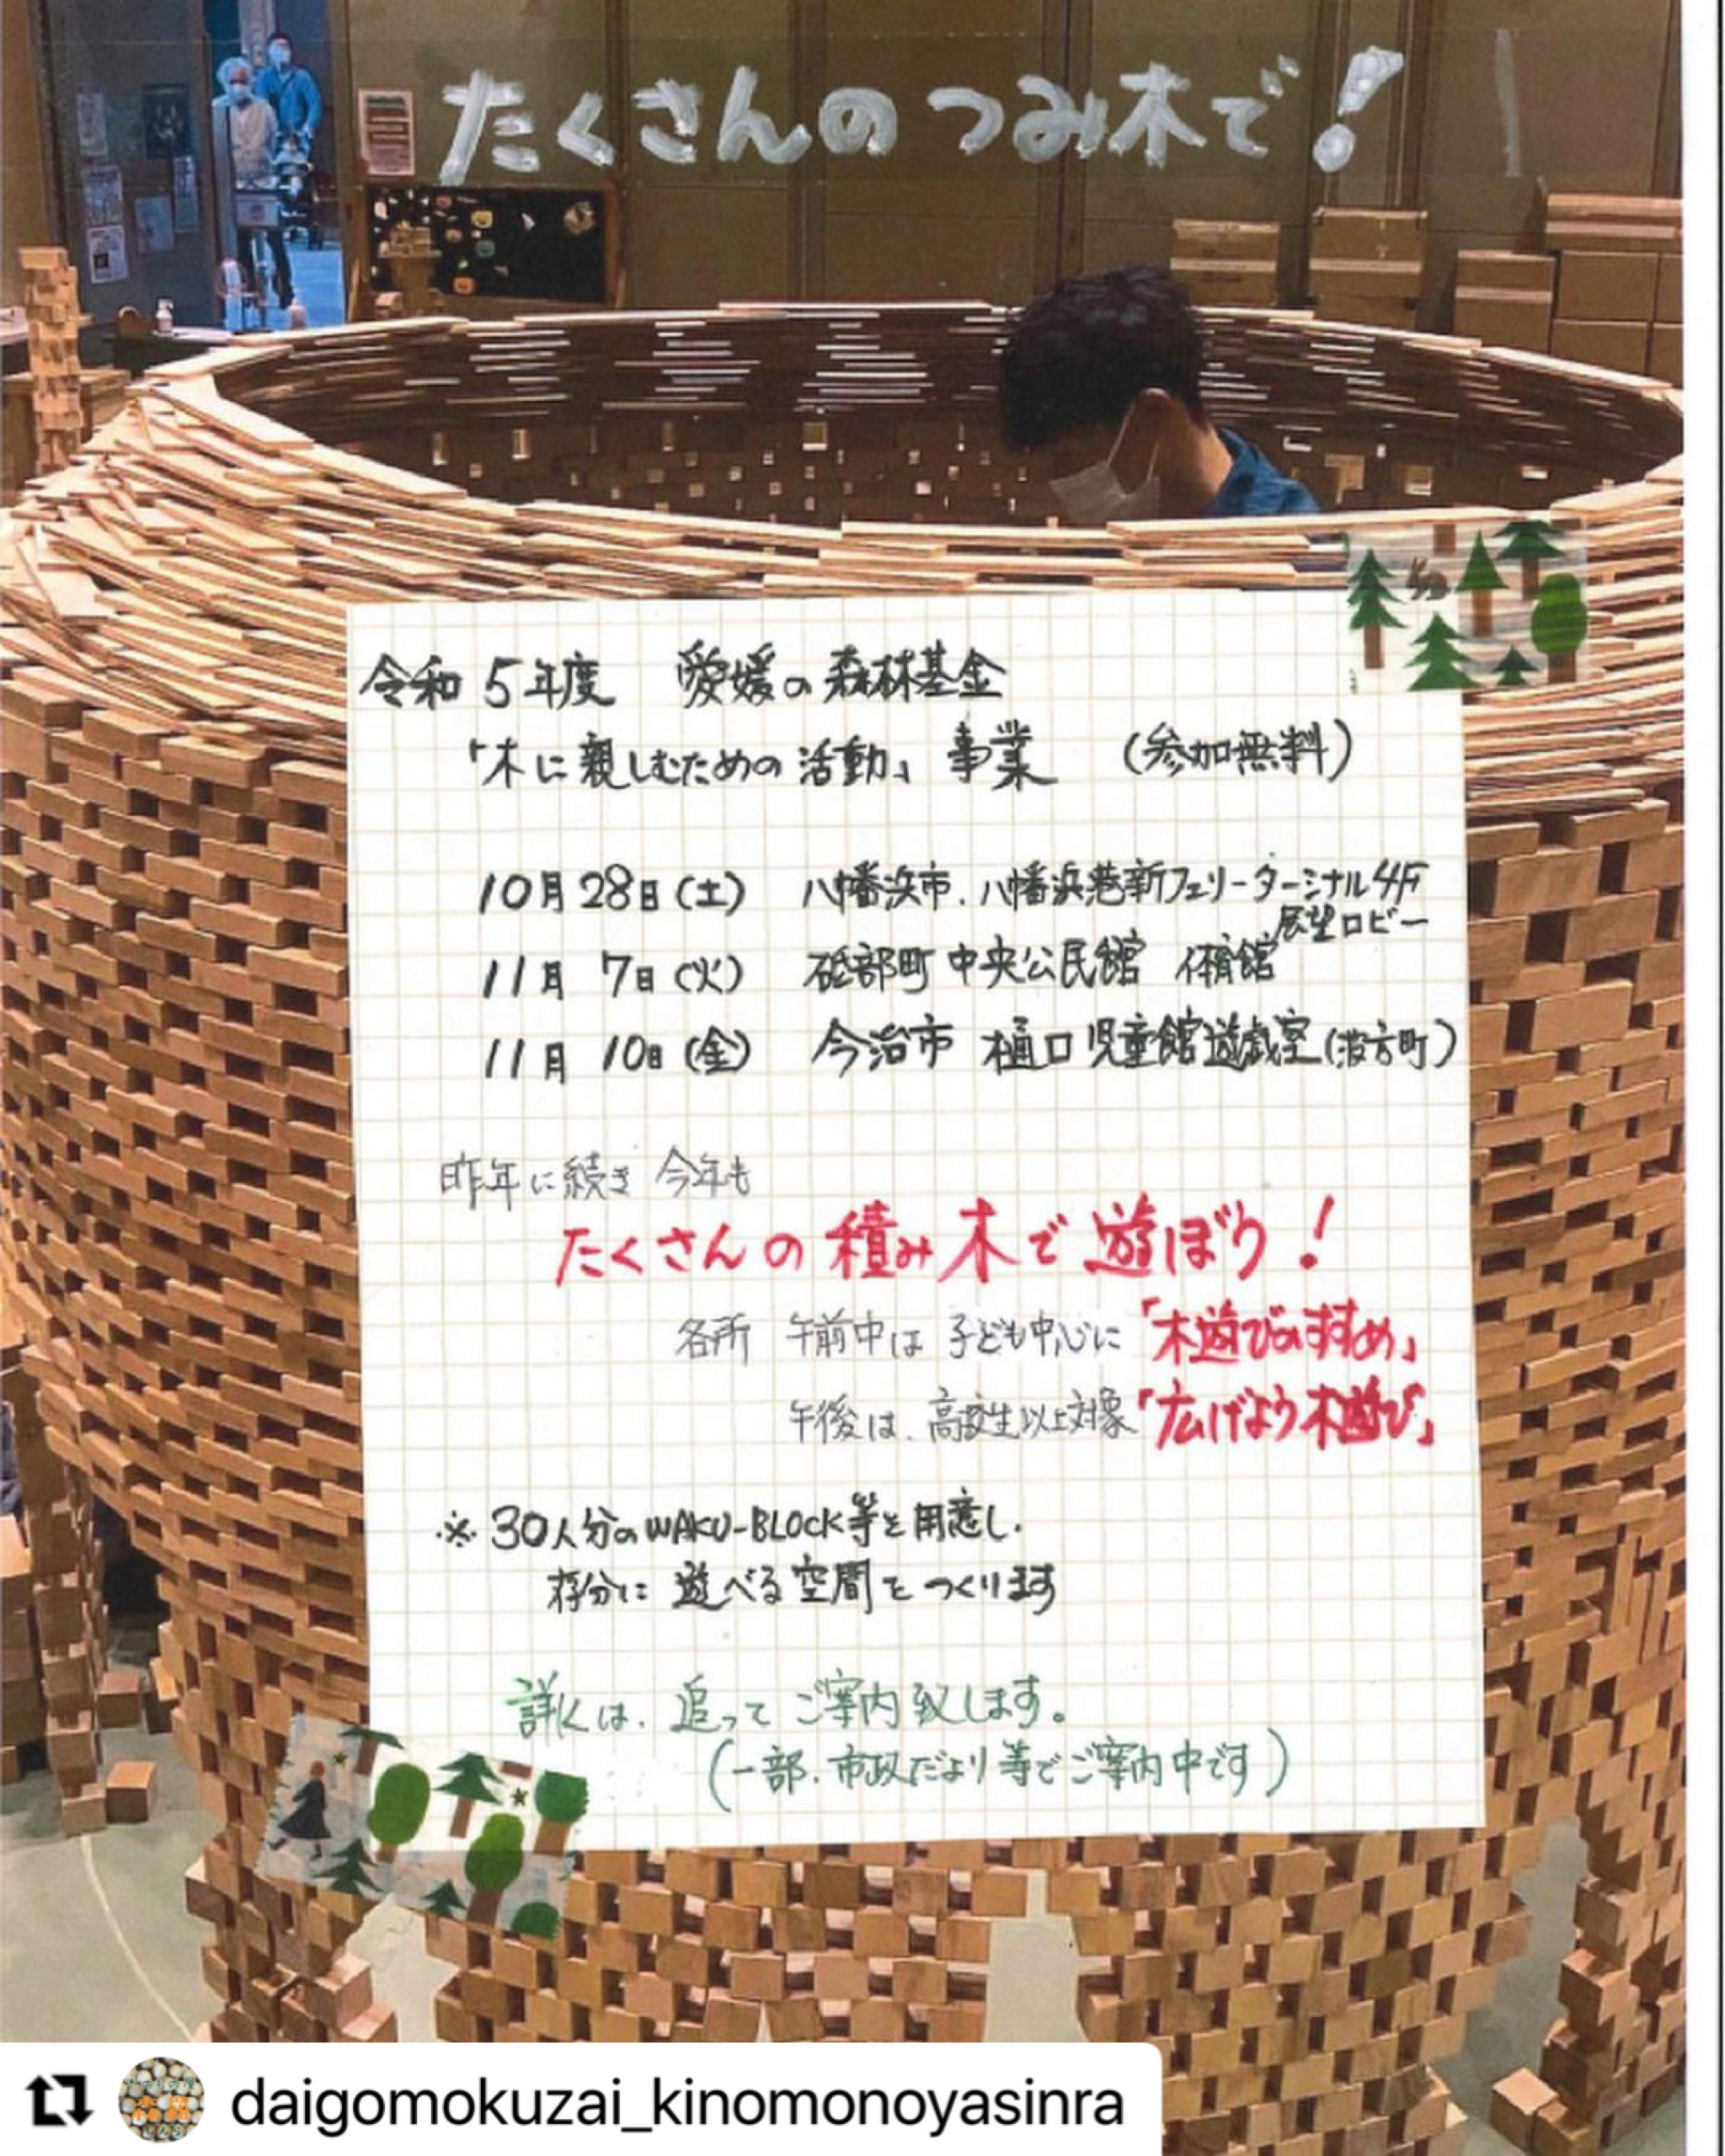 たくさんのつみ木で!
令和5年度 愛媛の森林基金
「木に親しむための活動」事業 (参加無料)
10月28日(土) 八幡浜市.八幡浜港新フェリーターミナル4F
展望ロビー
11月 7日(火) 砥部町中央公民館 体育館
11月 10日(金) 今治市 樋口児童館遊戯室(波方町)
昨年に続き 今年も
たくさんの積み木で遊ぼう!
各所 午前中は 子ども中心に「木遊びのすすめ」
午後は、高校生以上対象「広げよう木遊び」
※30人分のWAKU-BLOCK等を用意し.
存分に 遊べる空間をつくります
詳しくは、追ってご案内致します。
(一部、市政だより等でご案内中です)
daigomokuzai_kinomonoyasinra